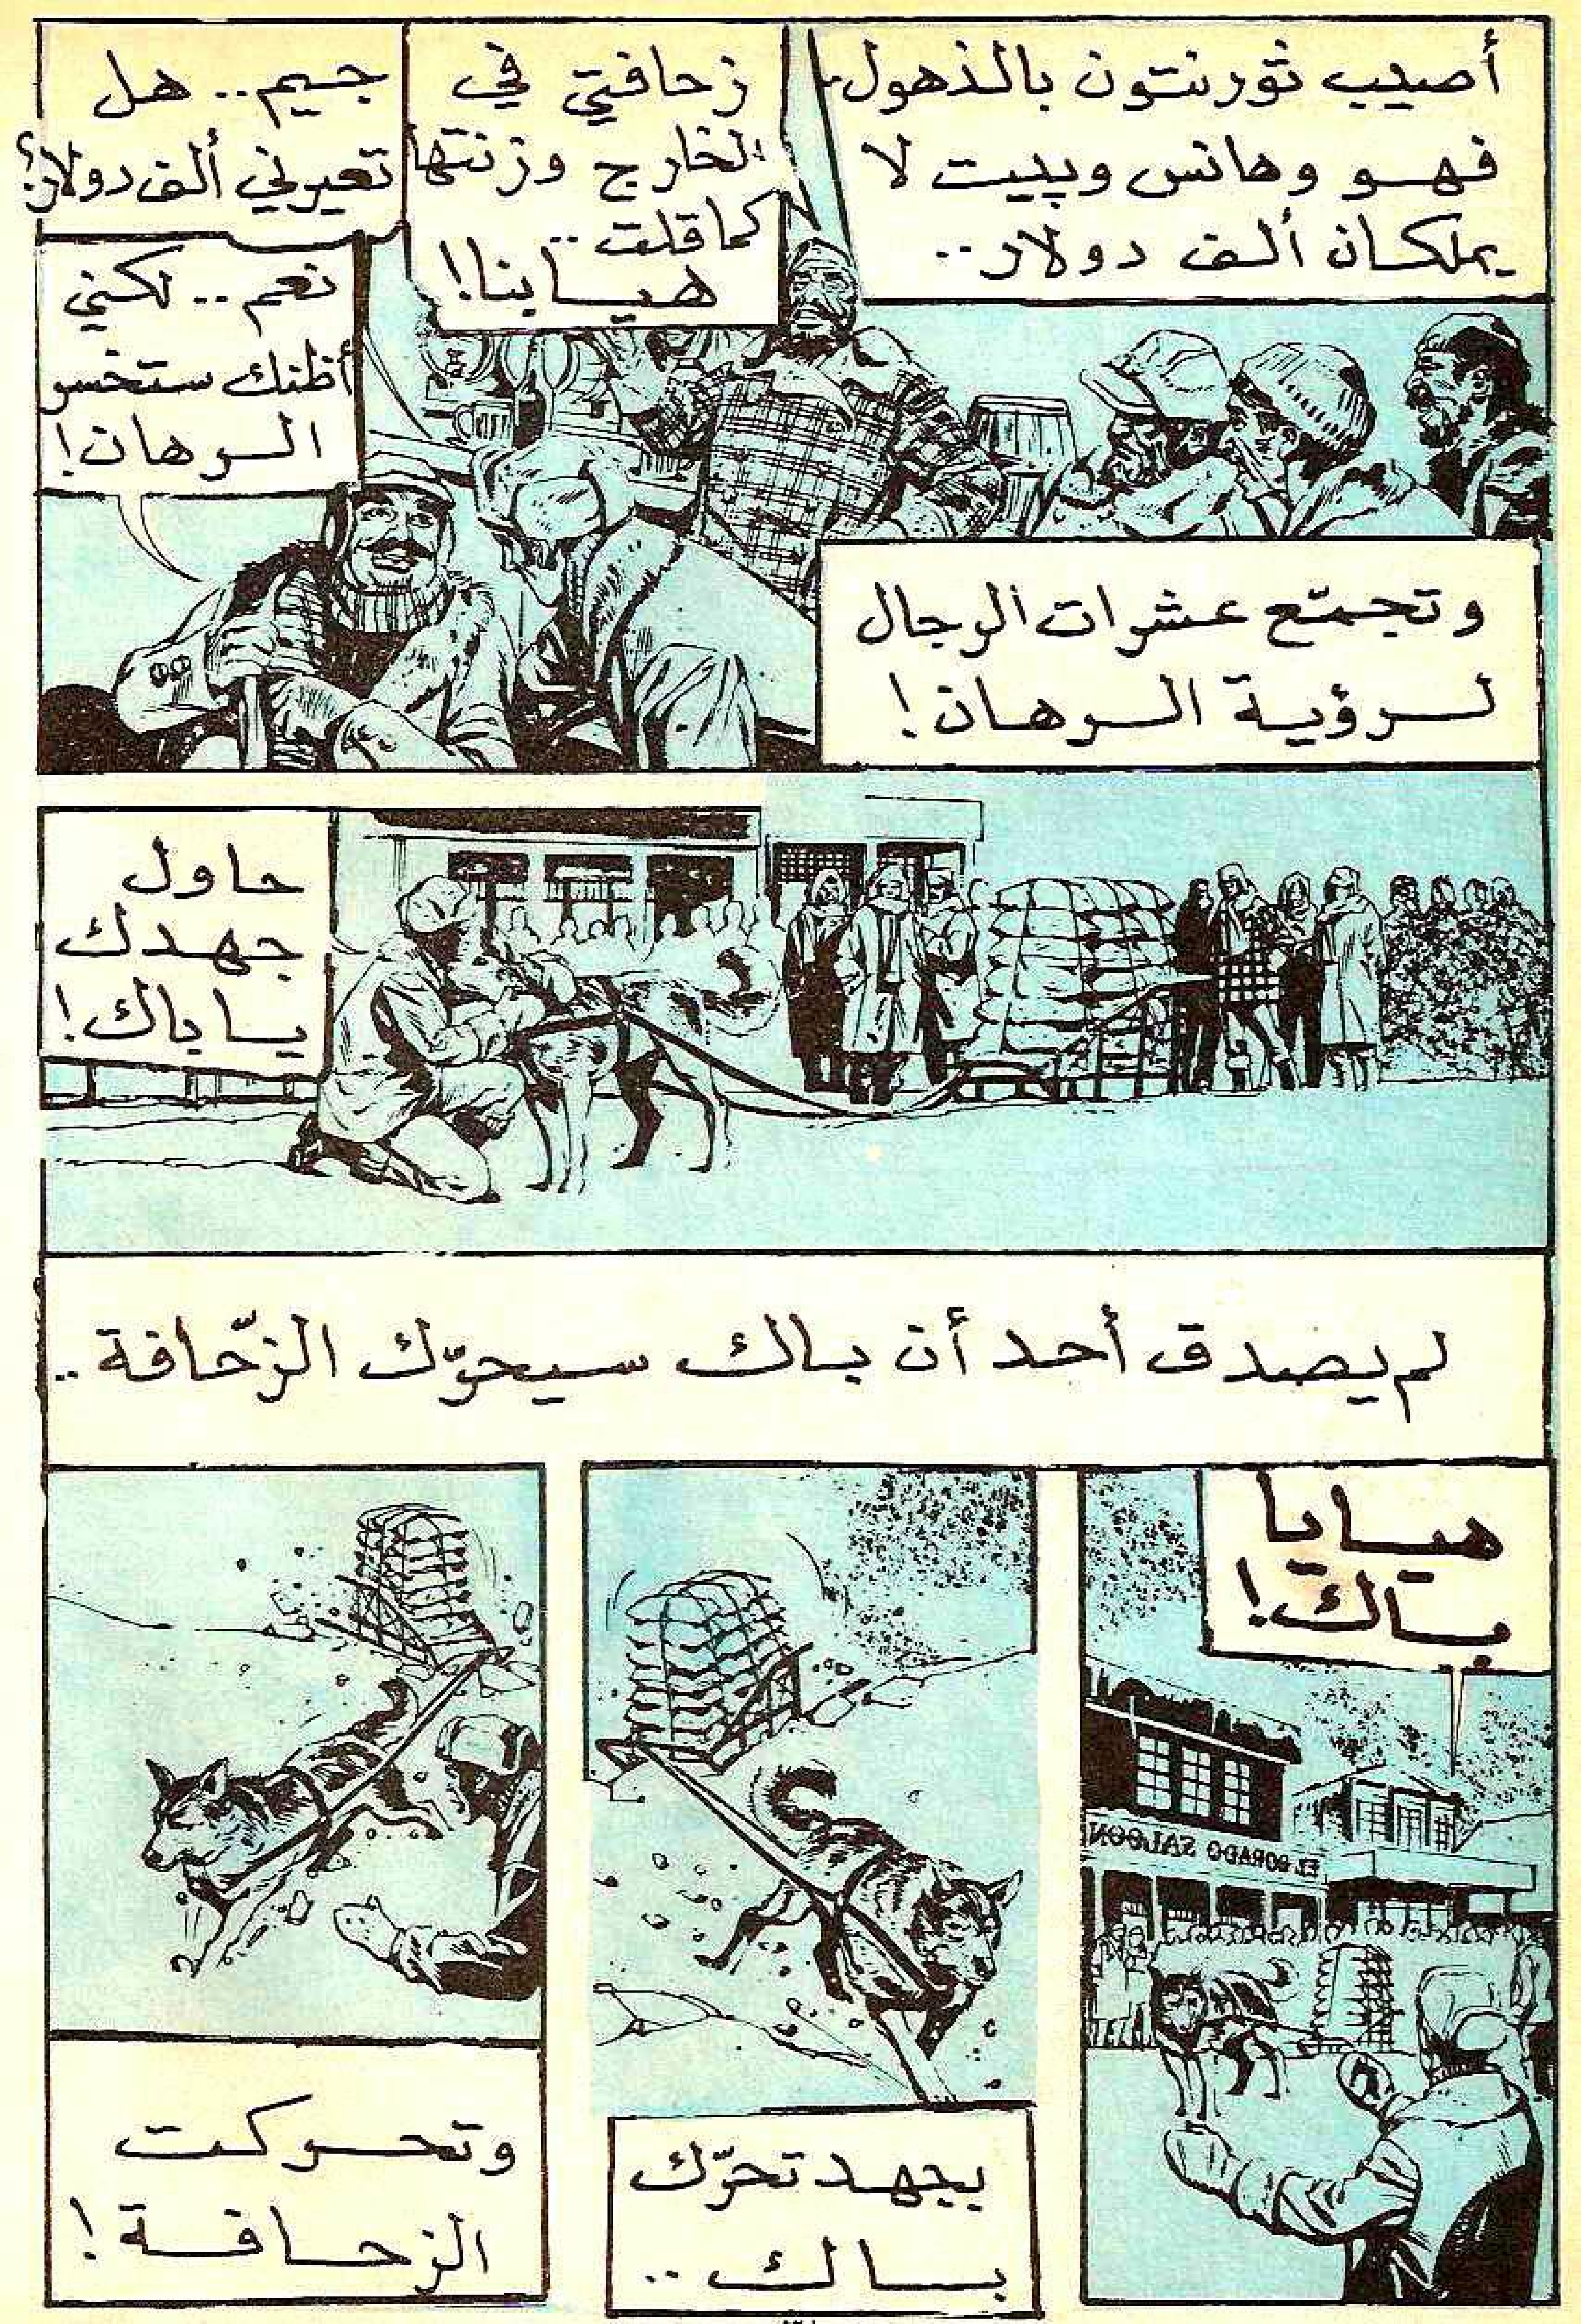 أصيب ثورنتون بالذهول
فهو وهانس وبييت لا
يملكان ألف دولار..
زحافتي في
الخارج وزنتها
كما قلت..
هيا بنا!
جيم.. هل
تعيرني ألف دولار؟
نعم.. لكني
أظنك ستخسر
الرهان!
وتجمّع عشرات الرجال
لرؤية الرهان!
حاول
جهدك
يا باك!
لم يصدق أحد أن باك سيحرّك الزحّافة..
هيا يا
باك!
EL DORADO SALOON
بجهد تحرّك
باك..
وتحركت
الزحافة!